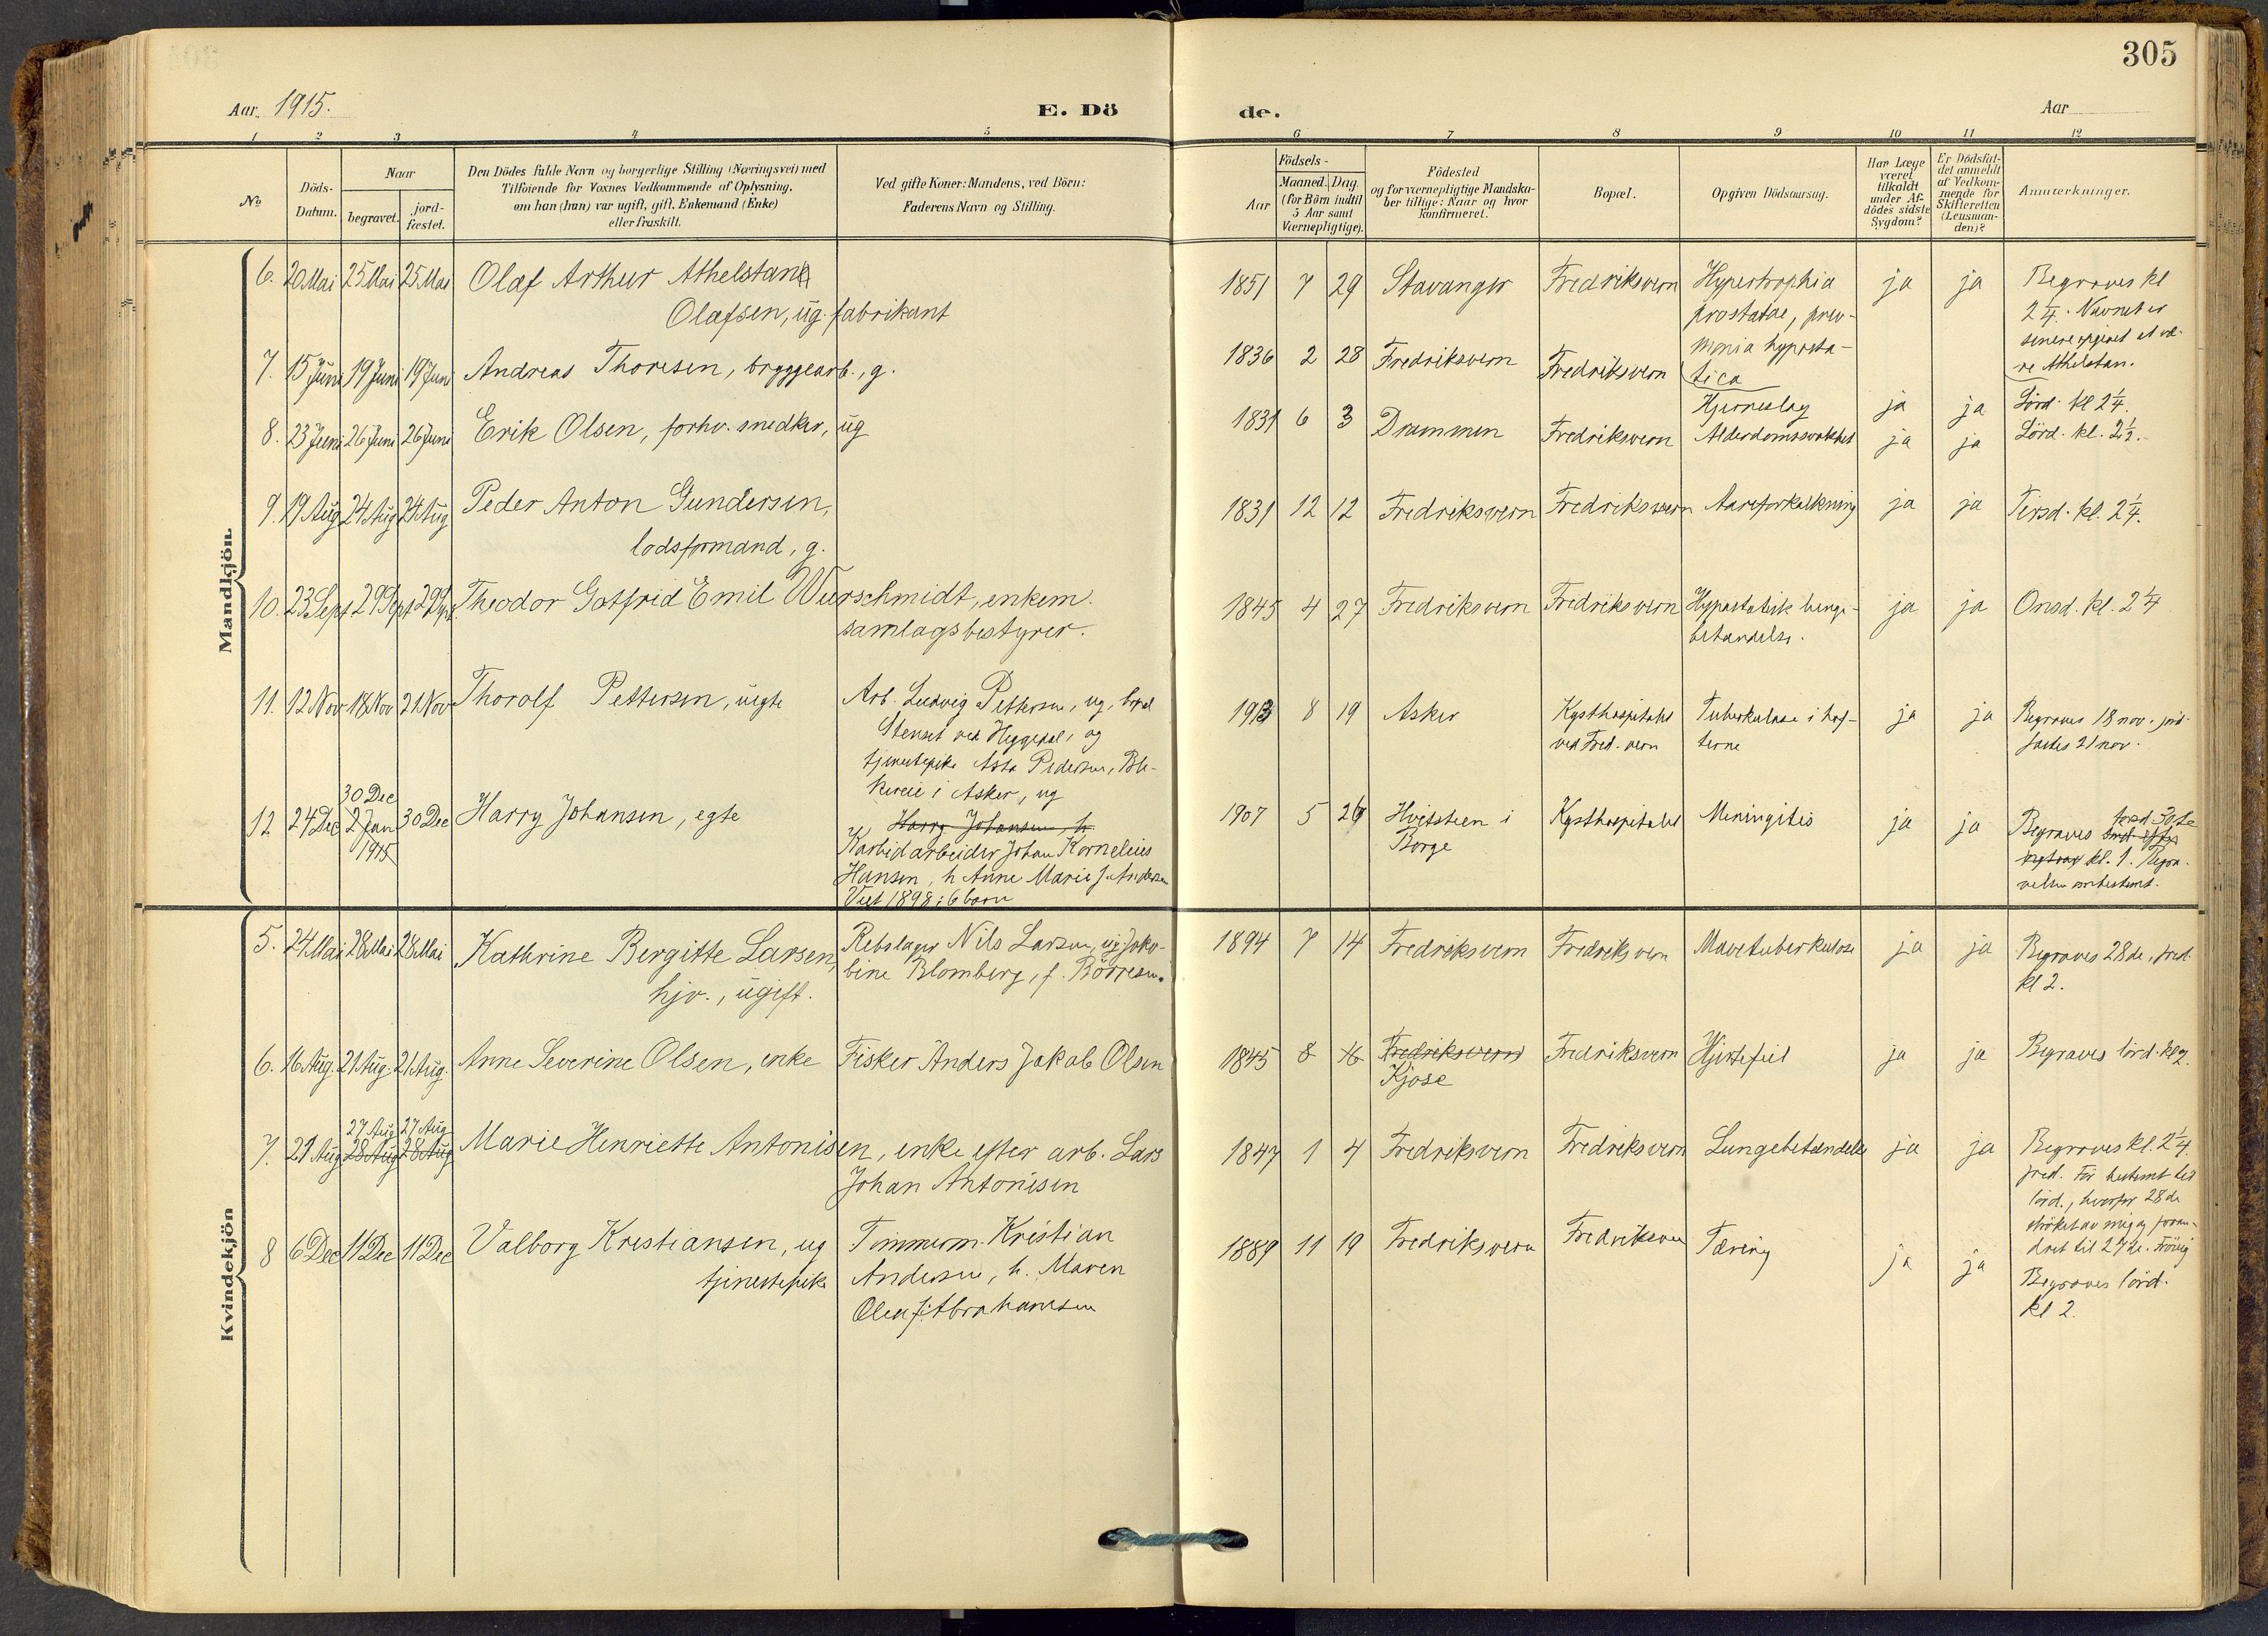 305
Aar. 1915.
E. Dö
de.
Aar
1 2 3 4 5 6 7 8 9 10 11 12
No
Döds-
Datum.
Naar
begravet.
jord-
fæstet.
Den Dödes fulde Navn og borgerlige Stilling (Næringsvei) med
Tilföiende for Voxnes Vedkommende af Oplysning,
om han (hun) var ugift, gift, Enkemand (Enke)
eller fraskilt.
Ved gifte Koner: Mandens, ved Börn:
Faderens Navn og Stilling.
Födsels-
Aar
Maaned. Dag.
(for Børn indtil
5 Aar samt
Værnepligtige).
Födested
og for værnepligtige Mandska-
ber tillige: Naar og hvor
konfirmeret.
Bopæl.
Opgiven Dödsaarsag.
Har Læge
været
tilkaldt
under Af-
dödes sidste
Sygdom?
Er Dödsfal-
det anmeldt
af Vedkom-
mende for
Skifteretten
(Lensman-
den)?
Anmærkninger.
Mandkjön.
6. 20 Mai 25 Mai 25 Mai Olaf Arthur Athelstane
Olafsen, ug. fabrikant
1851 7 29 Stavanger Fredriksvern Hypertrophia
prostatae, pneu-
monia hyposta-
tica
ja ja Begraves kl
2 1/4. Navnet er
senere opgivet at væ-
re Athelstan.
7. 15 Juni 19 Juni 19 Juni Andreas Thoresen, bryggearb., g.
1836 2 28 Fredriksvern Fredriksvern Hjerneslag ja ja Lörd. kl 2 1/4.
8. 23 Juni 26 Juni 26 Juni Erik Olsen, forhv. snedker, ug
1831 6 3 Drammen Fredriksvern Alderdomssvakhet ja ja Lörd. kl. 2 1/2.
9. 19 Aug 24 Aug 24 Aug Peder Anton Gundersen,
lodsformand, g.
1831 12 12 Fredriksvern Fredriksvern Aareforkalkning ja ja Tirsd. kl. 2 1/4.
10. 23 Sept 29 Sept 29 Sept. Theodor Gotfrid Emil Wurschmidt, enkem.
samlagsbestyrer.
1845 4 27 Fredriksvern Fredriksvern Hypostatisk lunge-
betændelse.
ja ja Onsd. kl. 2 1/4
11. 12 Nov 18 Nov 21 Nov Thorolf Pettersen, uegte
Arb. Ludvig Pettersen, ug,
Stenset ved Heggedal, og
tjenestepike Asta Pedersen, Ble-
kereie i Asker, ug
1913 8 19 Asker Kysthospitalet
ved Fred. vern
Tuberkulose i hof-
terne
ja ja Begraves 18 nov. jord-
fæstes 21 nov.
12 24 Dec 30 Dec
2 Jan
1915
30 Dec Harry Johansen, egte
Harry Johansen, h.
Karbidarbeider Johan Kornelius
Hansen, h. Anne Marie f. Andersen
Viet 1898; 6 barn
1907 5 26 Hvitsteen i
Borge
Kysthospitalet Meningitis ja ja Begraves
kl. 1. Begra-
velsen ombestemt.
Kvindekjön
5. 24 Mai 28 Mai 28 Mai Kathrine Bergitte Larsen,
hjv., ugift.
Rebslager Nils Larsen, og Jako-
bine Blomberg, f. Börresen.
1894 7 14 Fredriksvern Fredriksvern Mavetuberkulose ja ja Begraves 28de, fred.
kl 2.
6. 16 Aug. 21 Aug. 21 Aug. Anne Severine Olsen, enke Fisker Anders Jakob Olsen
1845 8 16 Fredriksvern
Kjose
Fredriksvern Hjertefeil ja ja Begraves lörd. kl 2.
7. 21 Aug 27 Aug 27 Aug
28 Aug 28 Aug
Marie Henriette Antonisen, enke efter arb. Lars
Johan Antonisen
1847 1 4 Fredriksvern Fredriksvern Lungebetændelse ja ja Begraves kl. 2 1/4.
fred. Før bestemt til
lörd., hvorfor 28de
strøket av mig og foran-
dret til 27de.
8 6 Dec 11 Dec 11 Dec Valborg Kristiansen, ug
tjenestepike
Tømmerm. Kristian
Andersen, h. Maren
Olea f. Abrahamsen
1889 11 19 Fredriksvern Fredriksvern Tæring ja ja Begraves lörd.
kl 2.